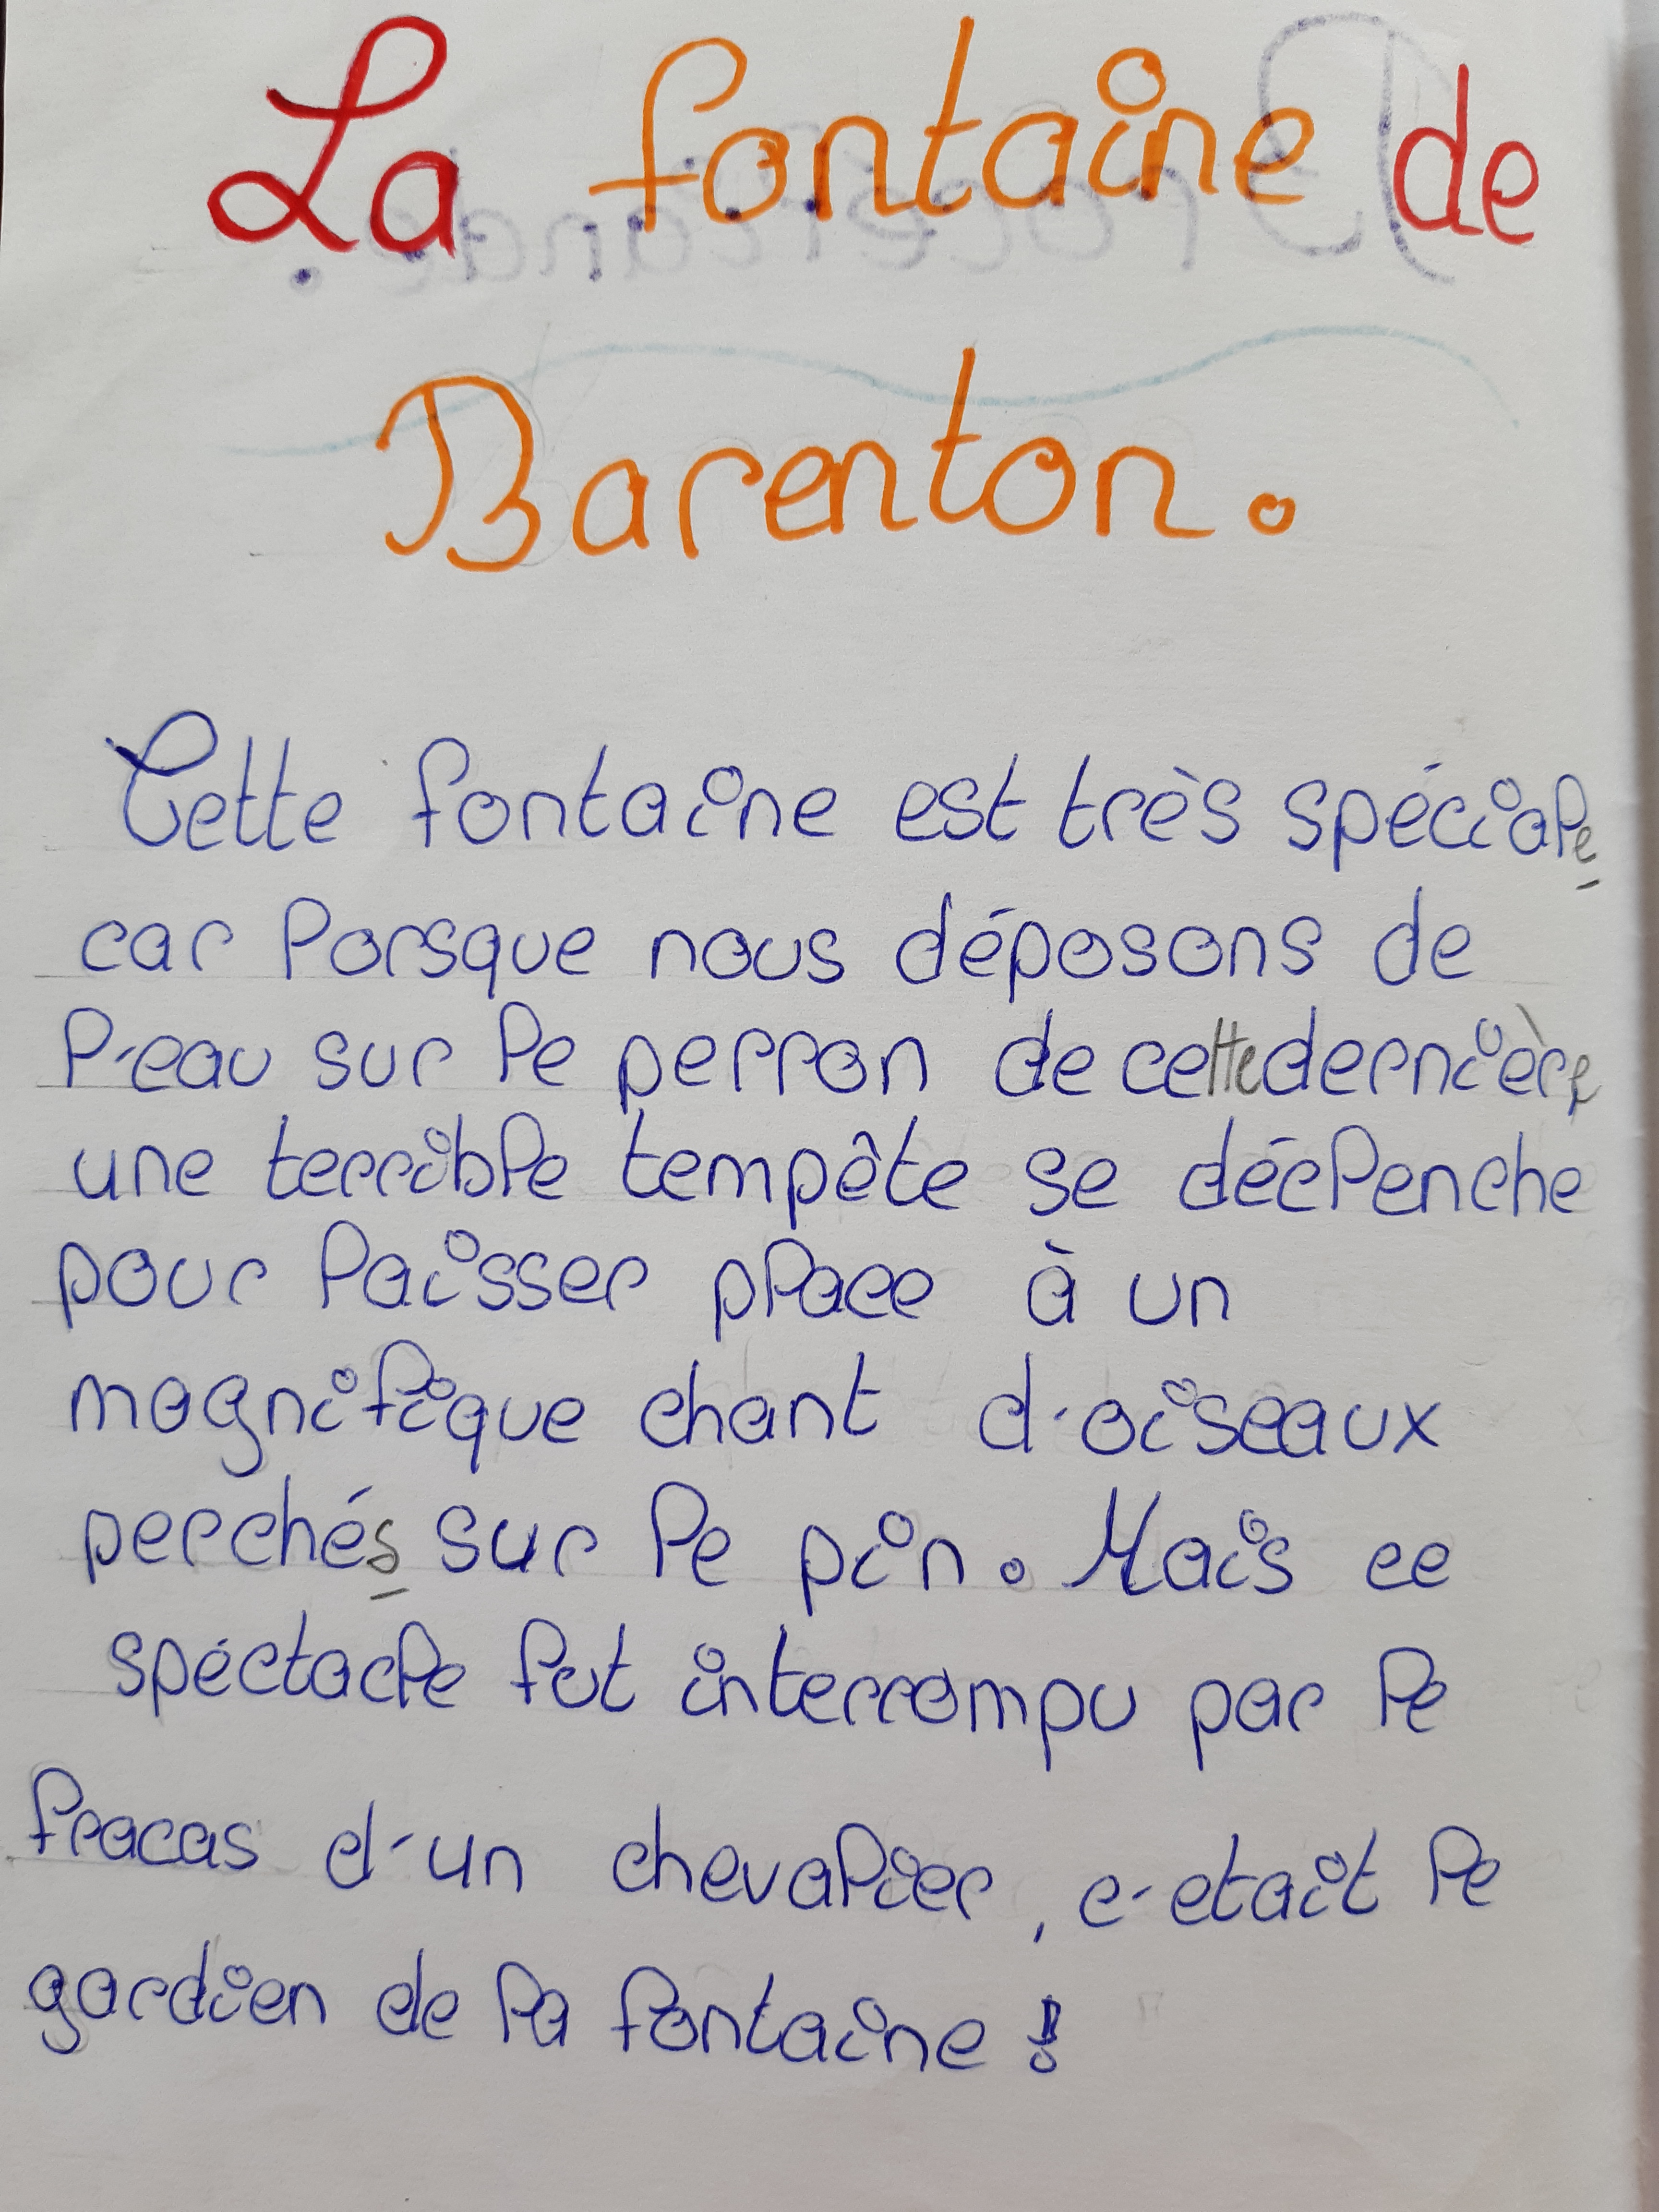 La fontaine de
Barenton.
Cette fontaine est très spéciale
car lorsque nous déposons de
l'eau sur le perron de cette dernière
une terrible tempête se déclenche
pour laisser place à un
magnifique chant d'oiseaux
perchés sur le pin. Mais ce
spéctacle fut interrompu par le
fracas d'un chevalier, c'etait le
gardien de la fontaine !